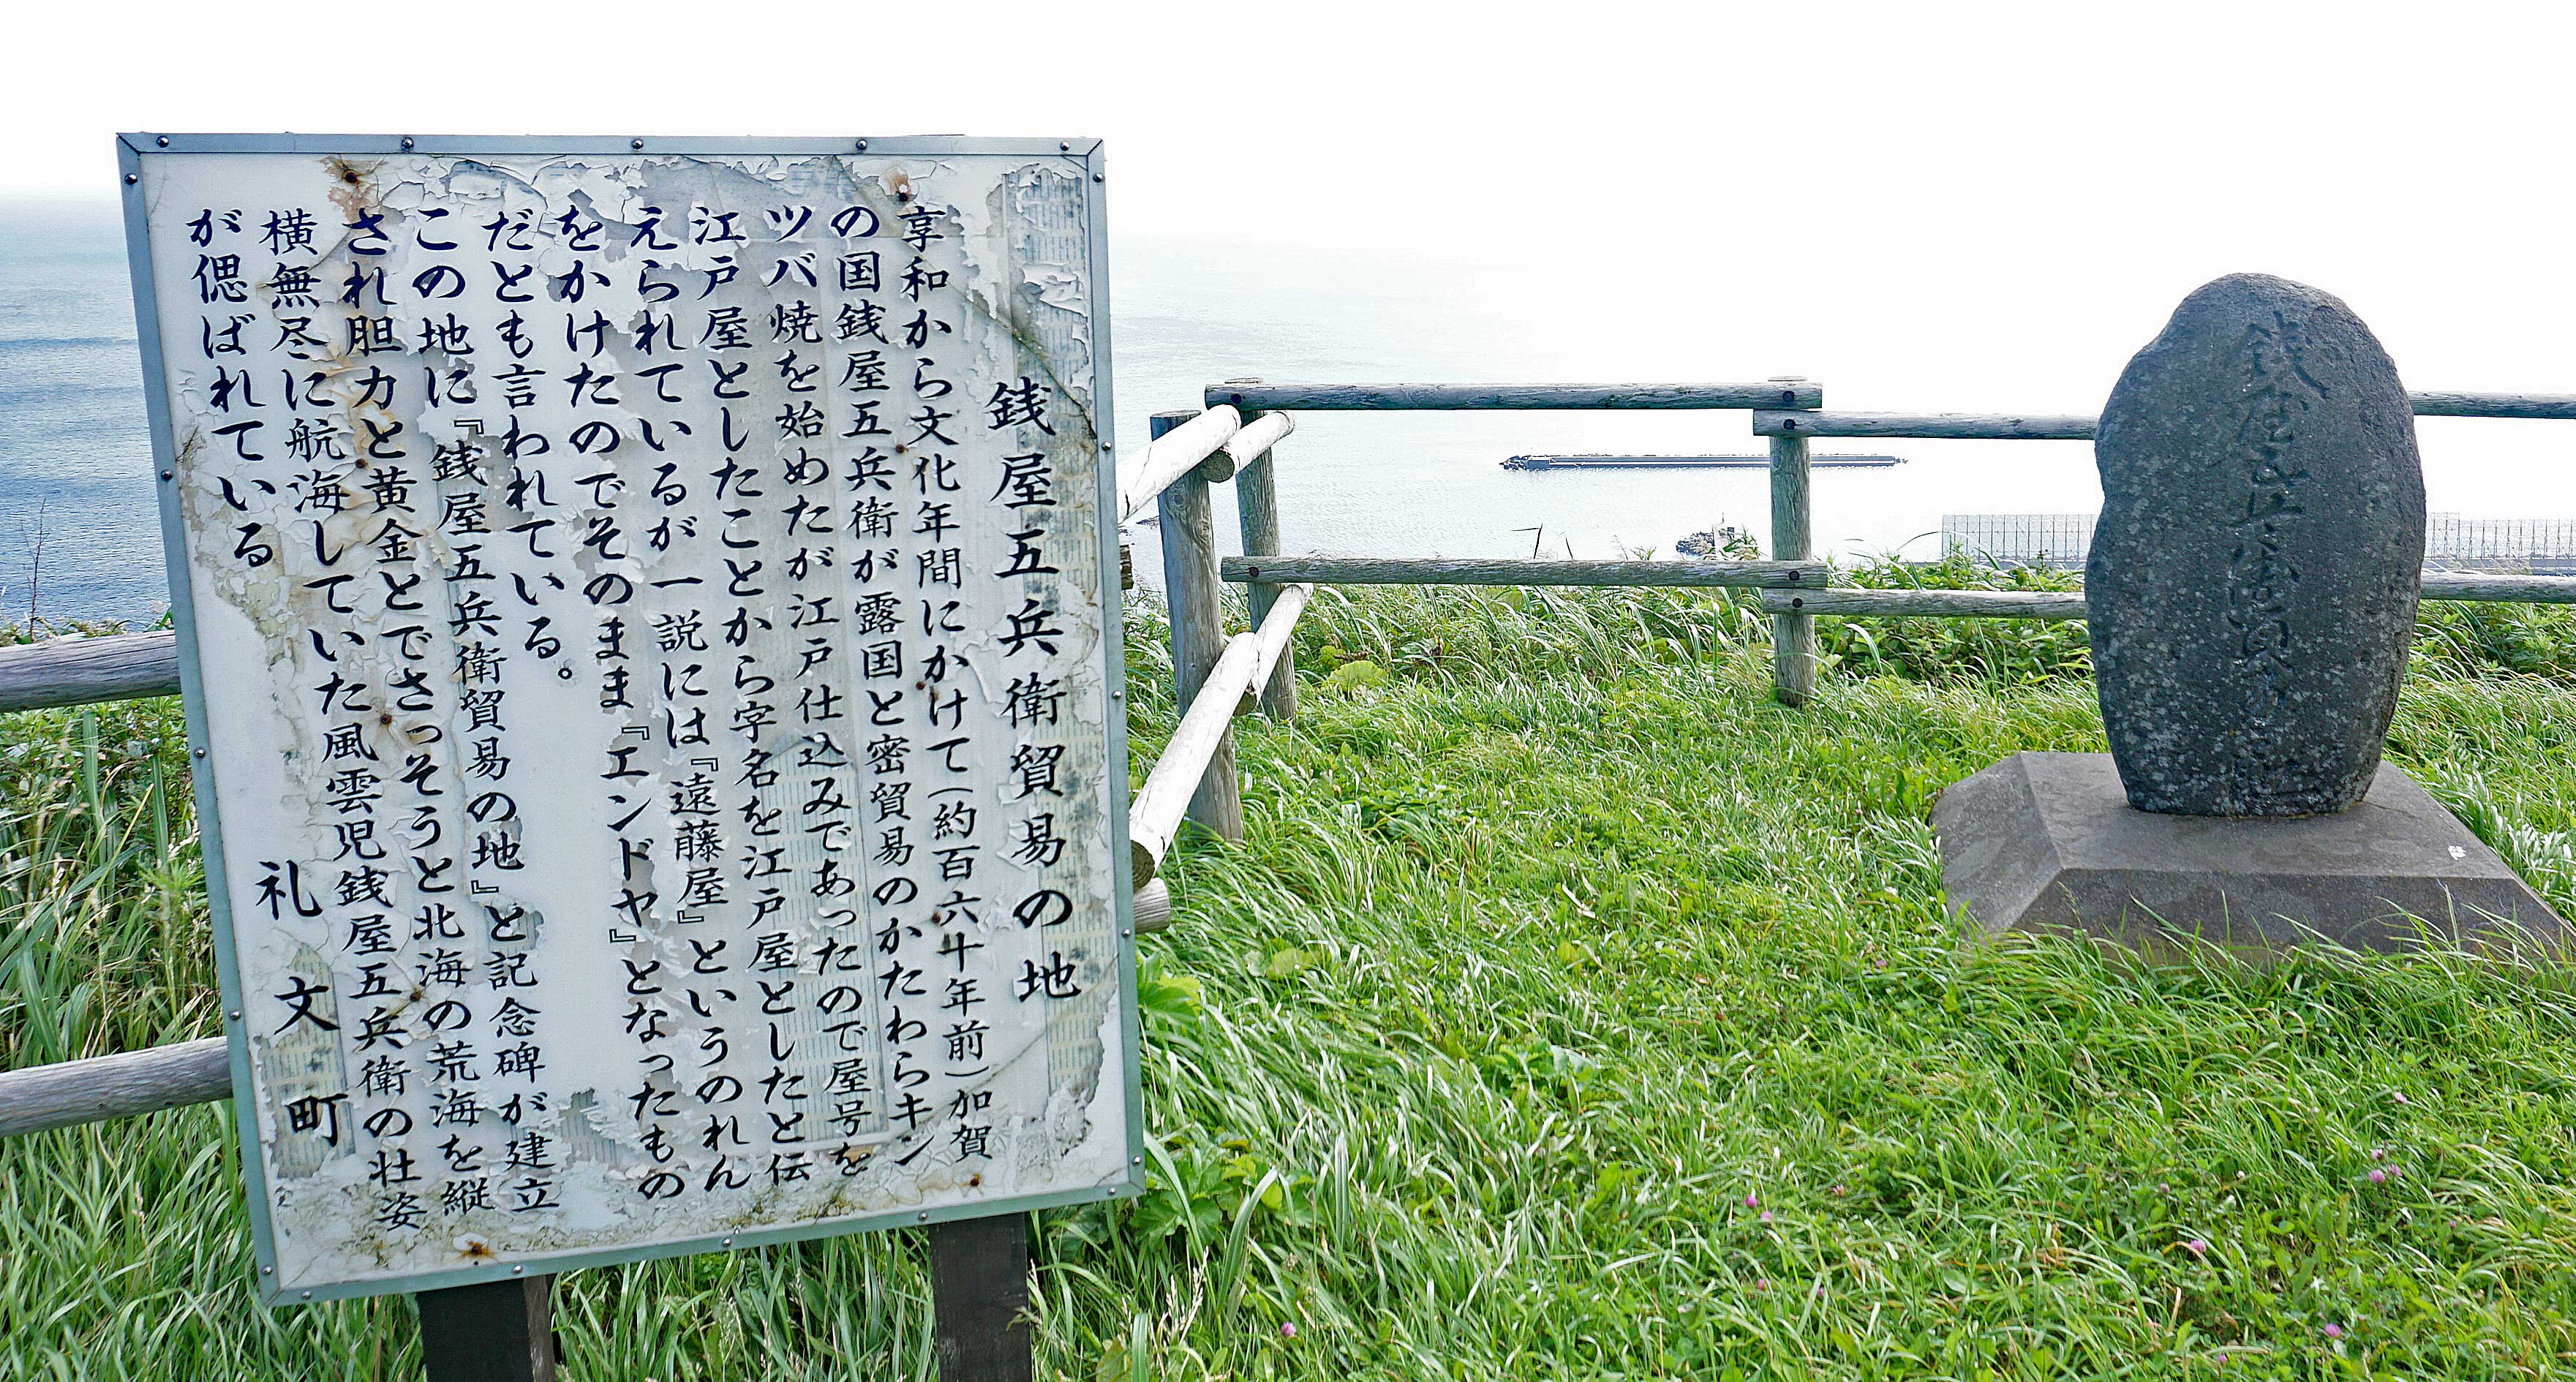 銭屋五兵衛貿易の地
享和から文化年間にかけて(約百六十年前)加賀
の国銭屋五兵衛が露国と密貿易のかたわらキン
ツバ焼を始めたが江戸仕込みであったので屋号を
江戸屋としたことから字名を江戸屋としたと伝
えられているが一説には『遠藤屋』というのれん
をかけたのでそのまま『エンドヤ』となったもの
だとも言われている。
この地に『銭屋五兵衛貿易の地』と記念碑が建立
され胆力と黄金とでさっそうと北海の荒海を縦
横無尽に航海していた風雲児銭屋五兵衛の壮姿
が偲ばれている
礼文町
銭屋五兵衛貿易の地